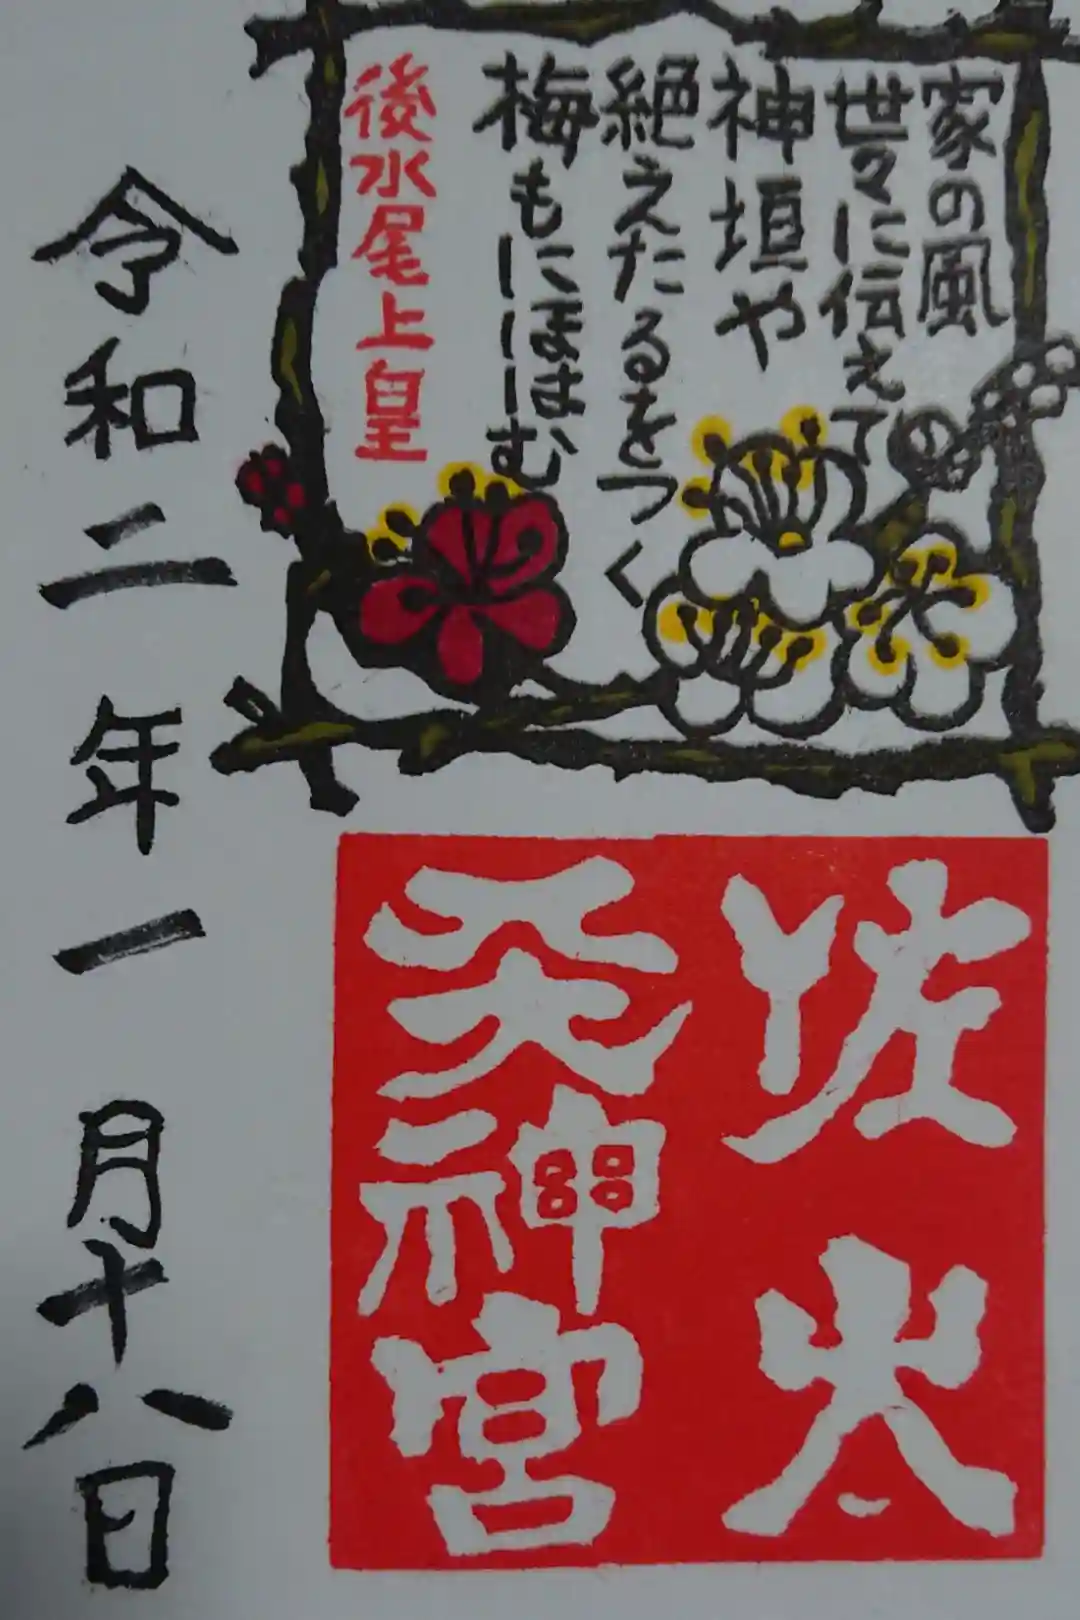 家の風
世々に伝えて
神垣や
絶えたるをつく
梅もにほはむ
後水尾上皇
佐太
天神宮
令和二年一月十八日